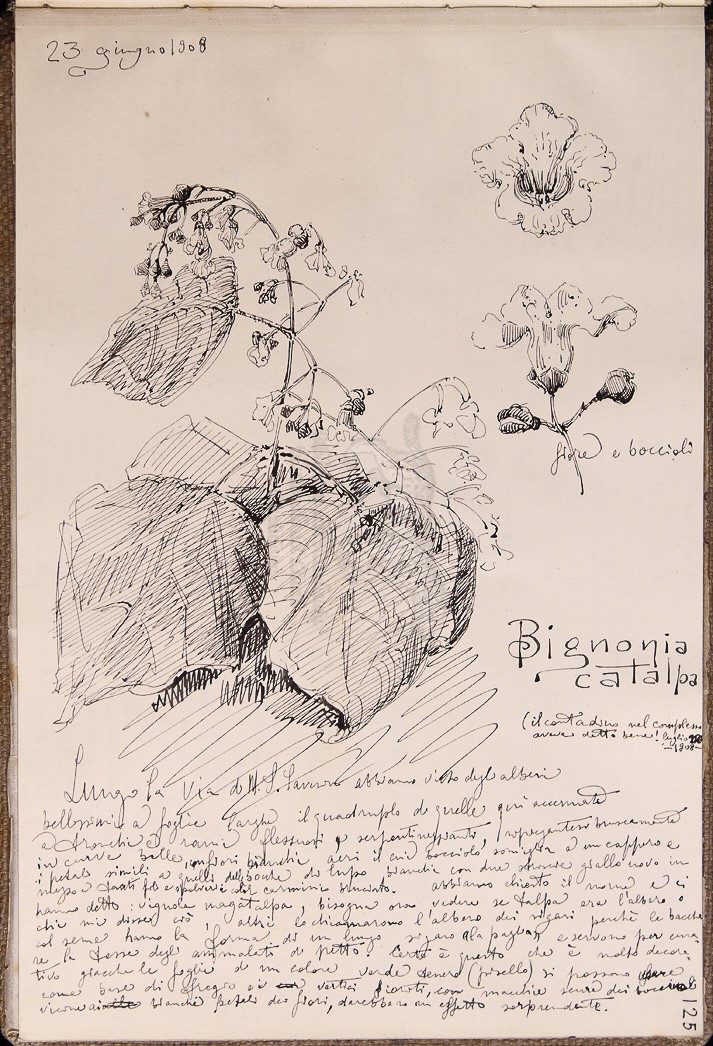 23 giugno 1908
fiore e boccioli
Bignonia
catalpa
(il contadino nel complesso
aveva detto bene! luglio
1908
Lungo la via di M. S. abbiamo visto degli alberi
bellissimi a foglie larghe il quadruplo di quelle qui accennate
a tronchi e rami flessuosi e serpentineggianti, bruscamente
in curve belle, con fiori bianchi il cui bocciolo somiglia a un cappero e
i petali simili a quelli delle bocche di lupo bianche con due giallo uovo in
mezzo e tanti di carminio bluastro. abbiamo chiesto il nome e ci
hanno detto: vignola magatalpa, bisogna ora vedere se talpa era l'albero o
chi mi disse ciò, altri lo chiamarono l'albero dei sigari perchè le bacche
col seme hanno la forma di un lungo sigaro (la paglia) e servono per cura-
re la tosse degli ammalati di petto. Certo è questo che è molto decora-
tivo giacchè le foglie di un colore verde tenero (pisello) si possono
come base di fregio e i vertici fioriti, con macchie scure dei boccioli
vicine ai bianchi petali dei fiori, darebbero un effetto sorprendente.
125